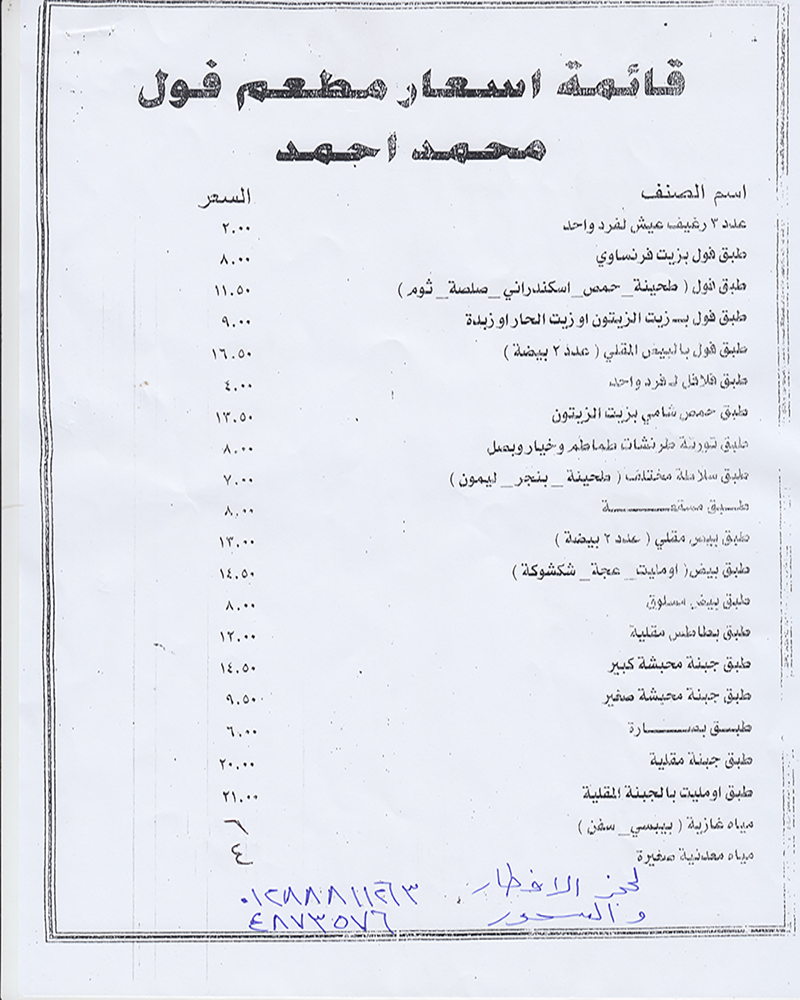 قائمة اسعار مطعم فول
محمد احمد
اسم الصنف السعر
عدد ٣ رغيف عيش لفرد واحد ٢.٠٠
طبق فول بزيت فرنساوي ٨.٠٠
طبق فول ( طحينة_ حمص_ اسكندراني_ صلصة_ ثوم ) ١١.٥٠
طبق فول بـزيت الزيتون او زيت الحار او زبدة ٩.٠٠
طبق فول بالبيض المقلي ( عدد ٢ بيضة ) ١٦.٥٠
طبق فلافل لـفرد واحد ٤.٠٠
طبق حمص شامي بزيت الزيتون ١٣.٥٠
طبق تورتة طرنشات طماطم وخيار وبصل ٨.٠٠
طبق سلاطة مختلف ( طحينة _ بنجر_ ليمون ) ٧.٠٠
طـــبق مسقعـــــــــة ٨.٠٠
طبق بيض مقلي ( عدد ٢ بيضة ) ١٣.٠٠
طبق بيض( اومليت_ عجة_ شكشوكة ) ١٤.٥٠
طبق بيض مسلوق ٨.٠٠
طبق بطاطس مقلية ١٢.٠٠
طبق جبنة محبشة كبير ١٤.٥٠
طبق جبنة محبشة صغير ٩.٥٠
طبـــق بصـــــــارة ٦.٠٠
طبق جبنة مقلية ٢٠.٠٠
طبق اومليت بالجبنة المقلية ٢١.٠٠
مياه غازية ( بيبسي_ سفن ) ٦
مياه معدنية صغيرة ٤
لحجز الافطار ٠١٢٨٨٨١١٢٦٣
والسحور ٤٨٧٣٥٧٦